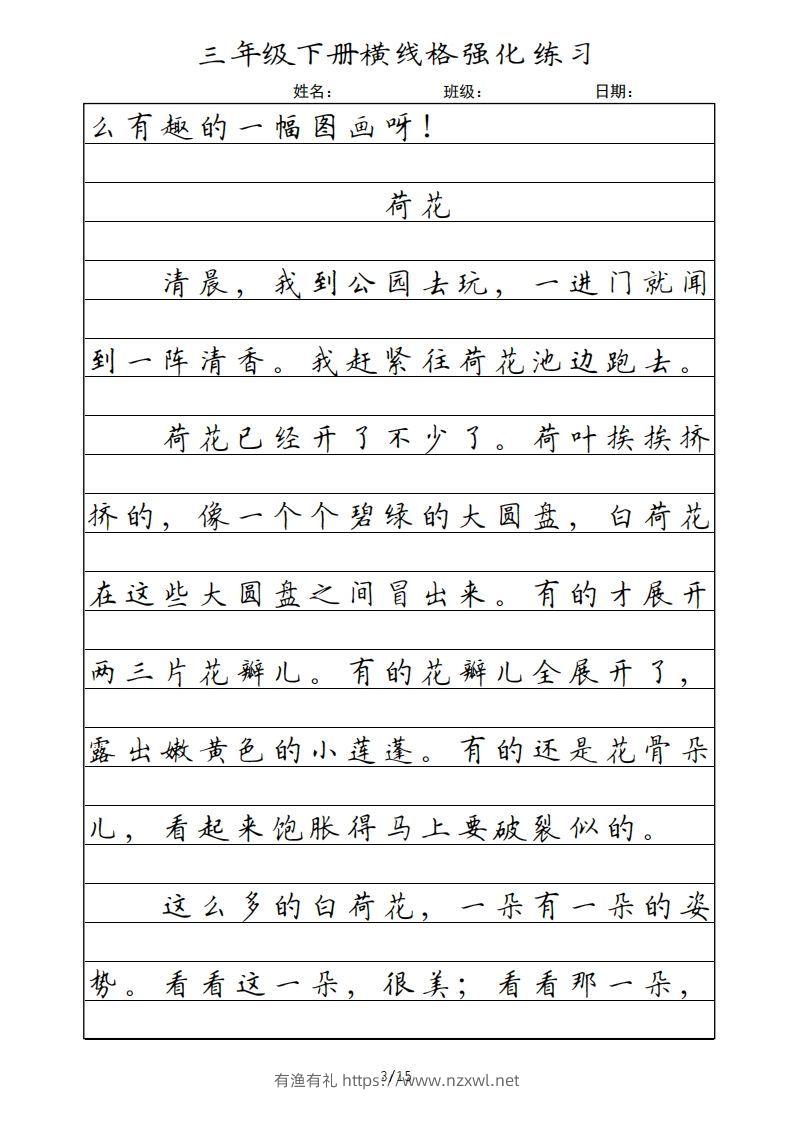 三年级下册横线格强化练习
姓名： 班级： 日期：
么有趣的一幅图画呀！
荷花
清晨，我到公园去玩，一进门就闻
到一阵清香。我赶紧往荷花池边跑去。
荷花已经开了不少了。荷叶挨挨挤
挤的，像一个个碧绿的大圆盘，白荷花
在这些大圆盘之间冒出来。有的才展开
两三片花瓣儿。有的花瓣儿全展开了，
露出嫩黄色的小莲蓬。有的还是花骨朵
儿，看起来饱胀得马上要破裂似的。
这么多的白荷花，一朵有一朵的姿
势。看看这一朵，很美；看看那一朵，
3/15
有渔有礼 https://www.nzxwl.net